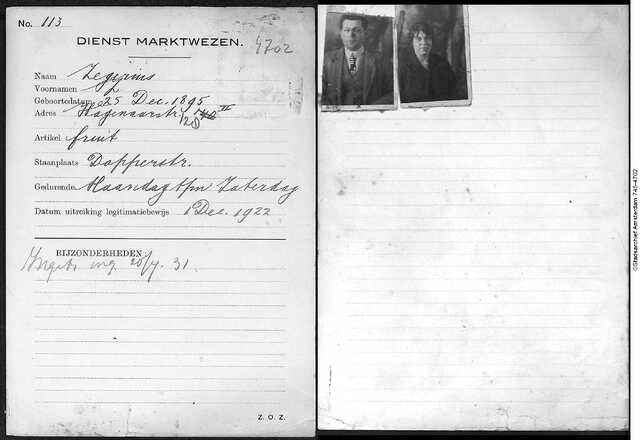 No. 113
DIENST MARKTWEZEN.
4702
Naam Zegerius
Voornamen J
Geboortedatum 25 Dec. 1895
Adres Wagenaarstr. 140 II
120
Artikel fruit
Staanplaats Dapperstr.
Gedurende Maandag t/m Zaterdag
Datum uitreiking legitimatiebewijs 1 Dec. 1922
BIJZONDERHEDEN:
Ingetr. 20/7. 31.
Z. O. Z.
©Stadsarchief Amsterdam 745-4702